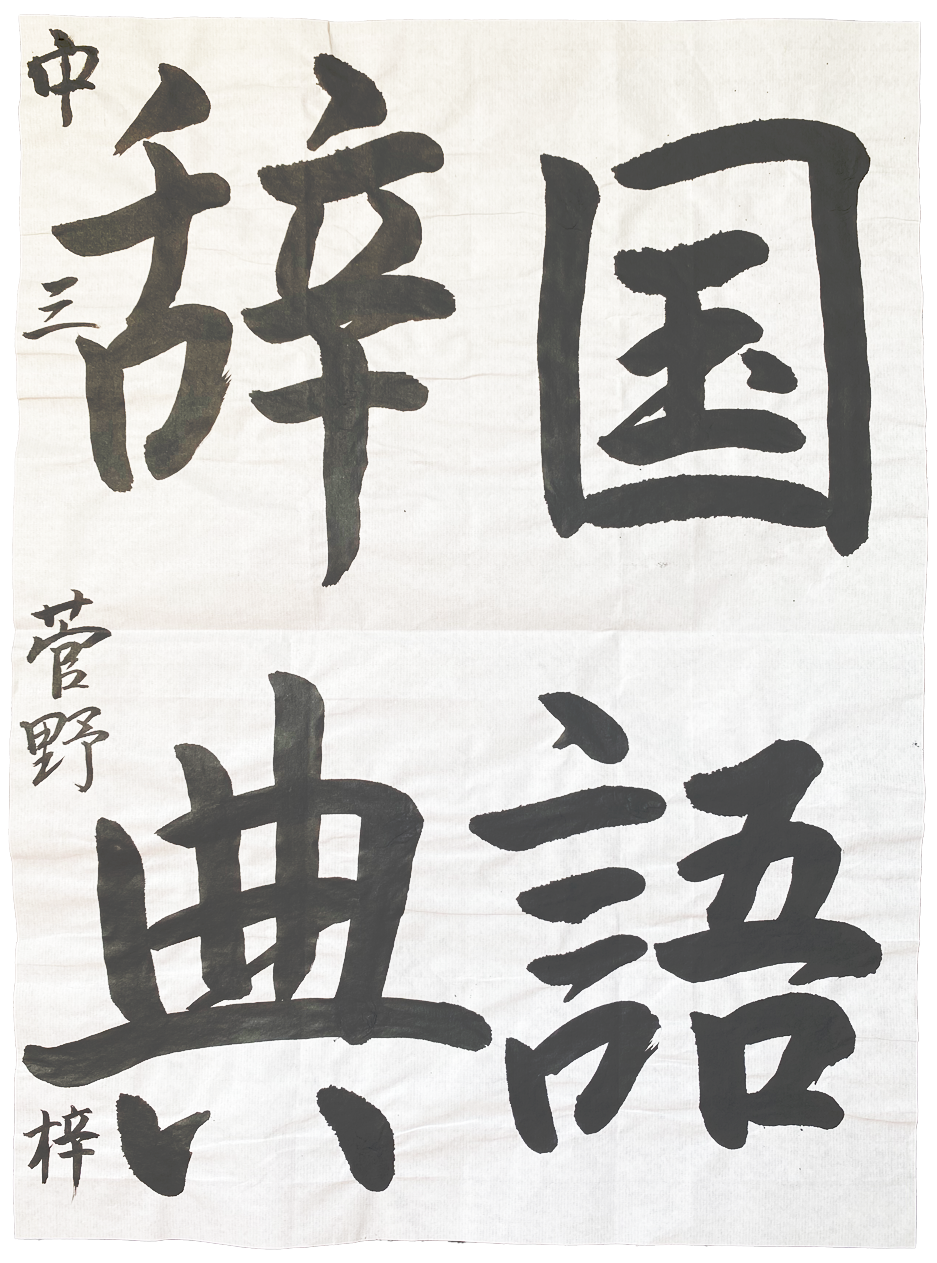 国語
辞典
中三 菅野 梓